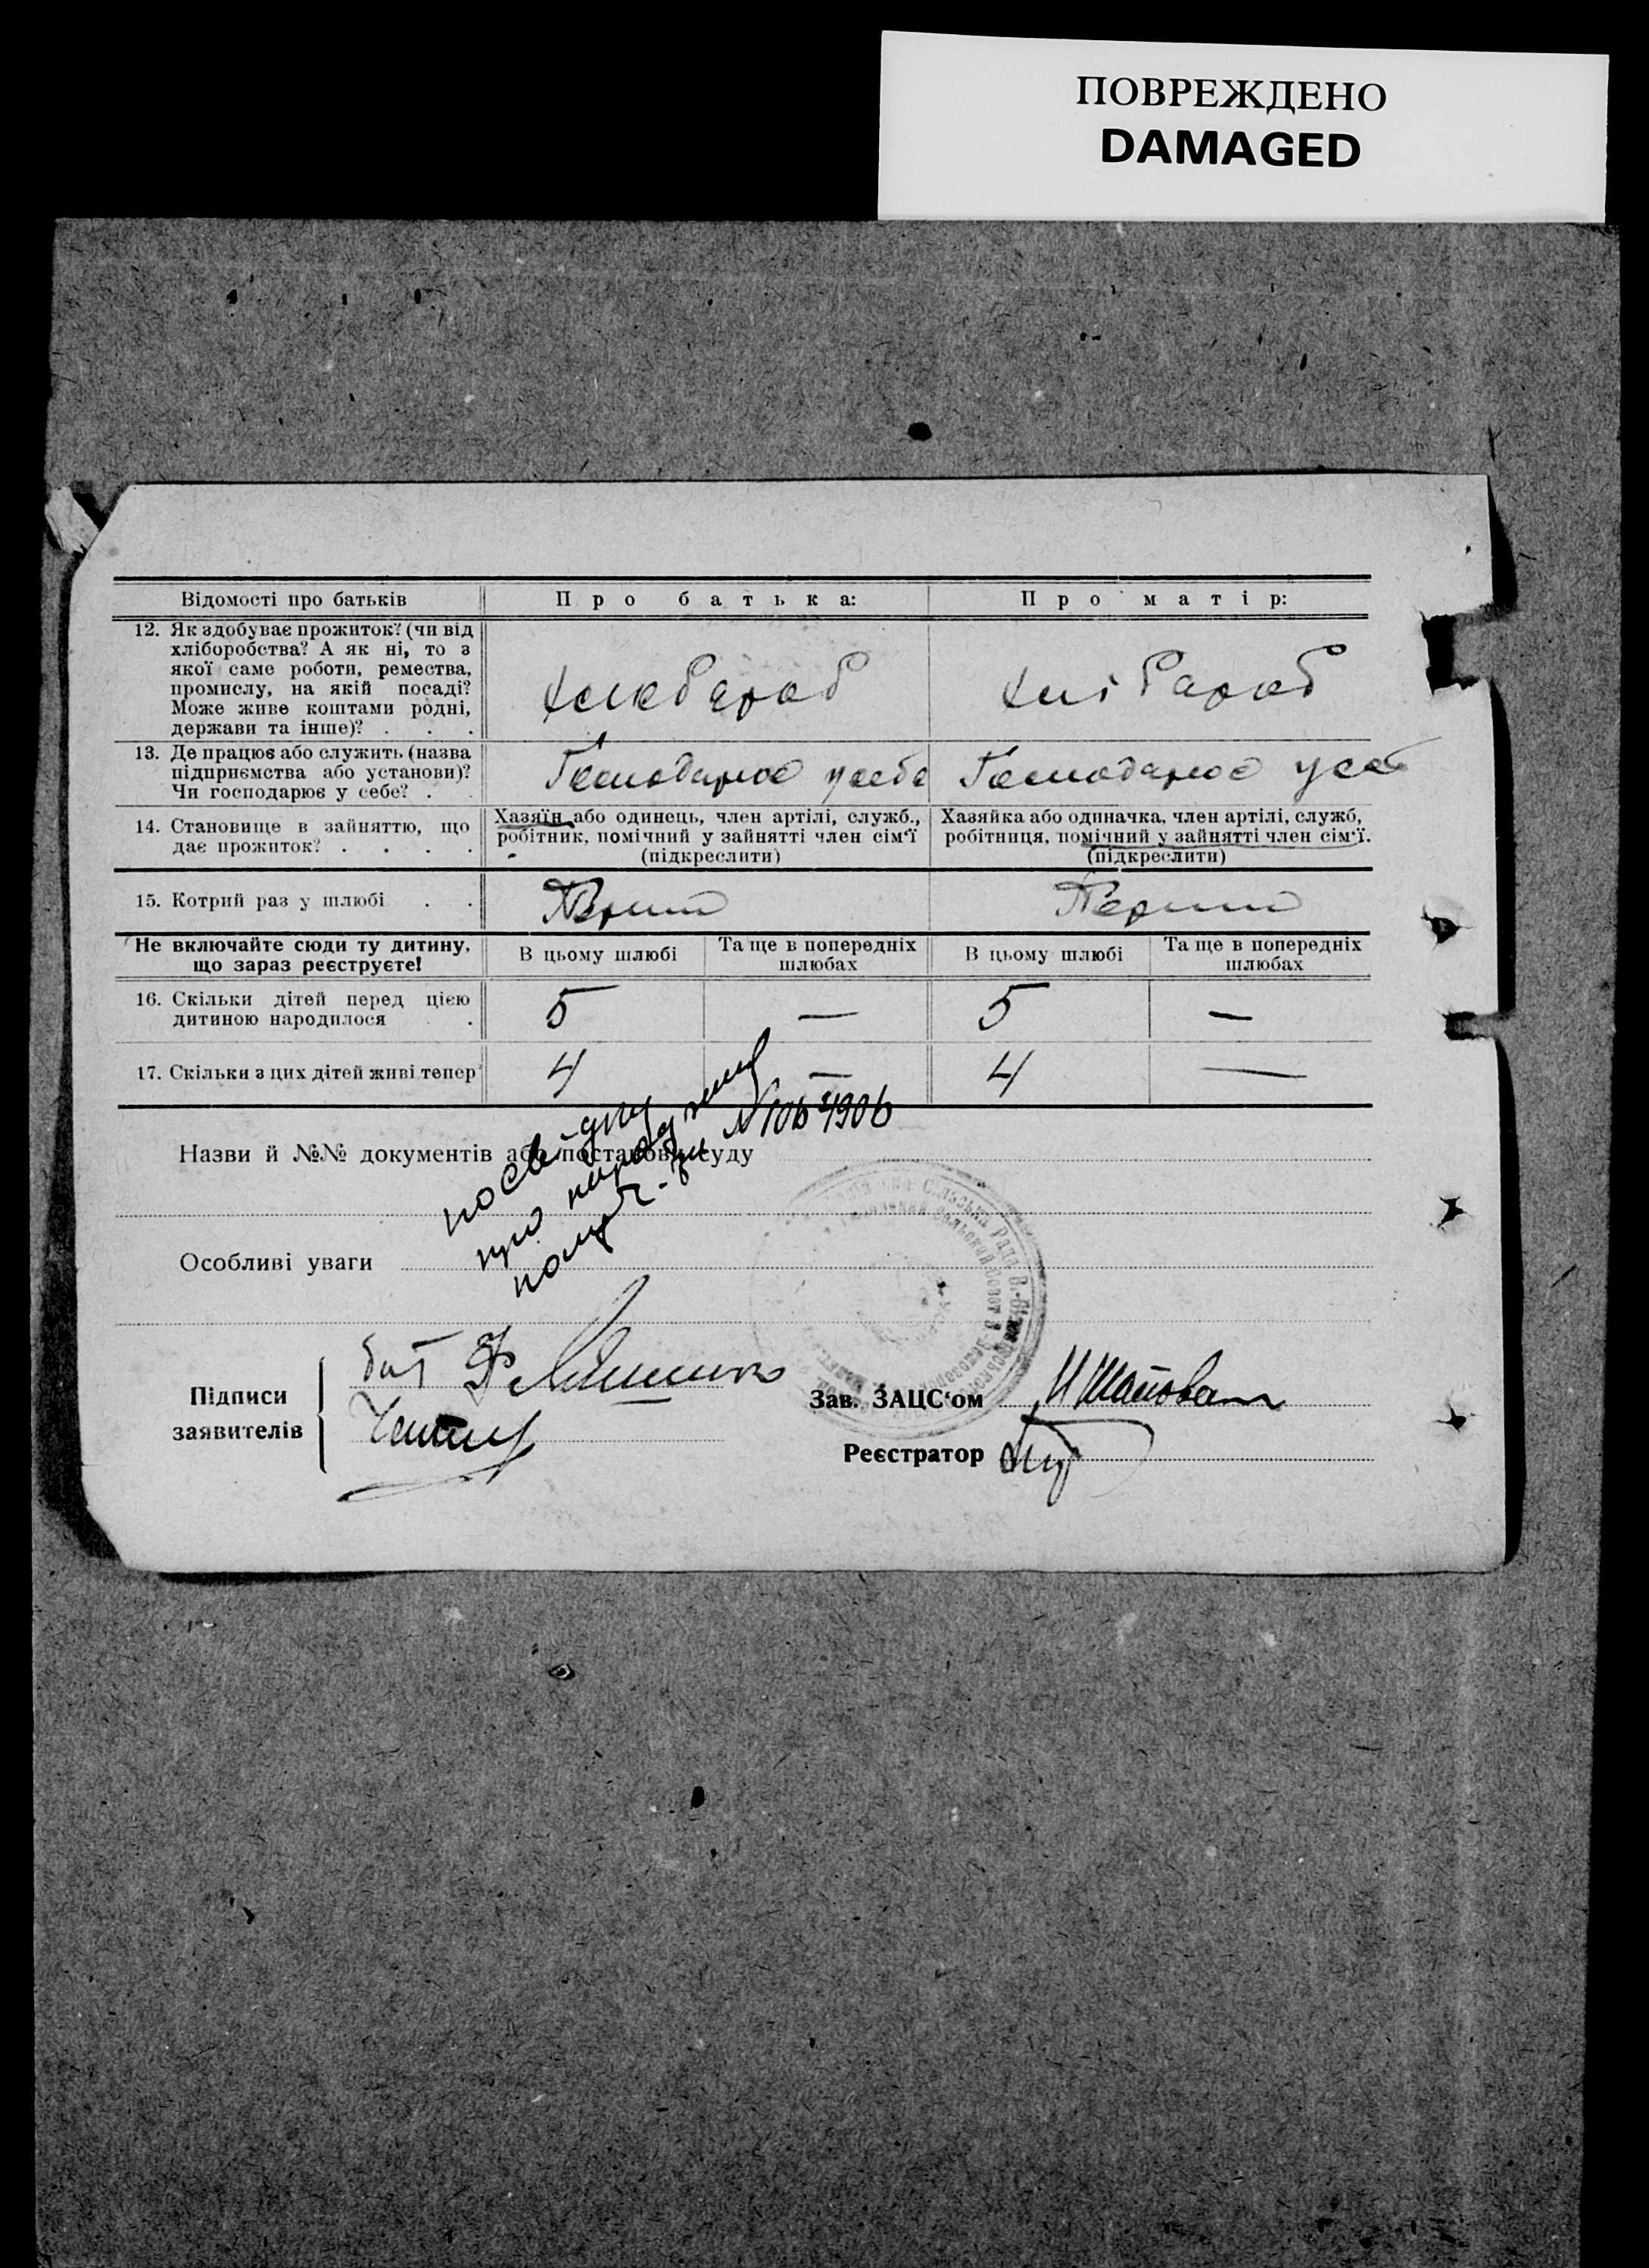 ПОВРЕЖДЕНО
DAMAGED
Відомості про батьків
Про батька:
Про матір:
12. Як здобуває прожиток? (чи від
хліборобства? А як ні, то з
якої саме роботи, ремества,
промислу, на якій посаді?
Може живе коштами родні,
держави та інше)? . . .
хлібароб
13. Де працює або служить (назва
підприємства або установи)?
Чи господарює у себе? .
Господарює у себе
Господарює у себе
14. Становище в зайняттю, що
дає прожиток? . . . .
Хазяїн або одинець, член артілі, служб.,
робітник, помічний у зайнятті член сім'ї
(підкреслити)
Хазяйка або одиначка, член артілі, служб,
робітниця, помічний у зайнятті член сім'ї.
(підкреслити)
15. Котрий раз у шлюбі . .
Перший
Не включайте сюди ту дитину,
що зараз реєструєте!
В цьому шлюбі
Та ще в попередніх
шлюбах
В цьому шлюбі
Та ще в попередніх
шлюбах
16. Скільки дітей перед цією
дитиною народилося .
5 — 5 —
17. Скільки з цих дітей живі тепер
4 — 4 —
Назви й №№ документів або постанови суду
посвідку
про
Особливі уваги
Підписи
заявителів
бат
Зав. ЗАЦС'ом
Реєстратор